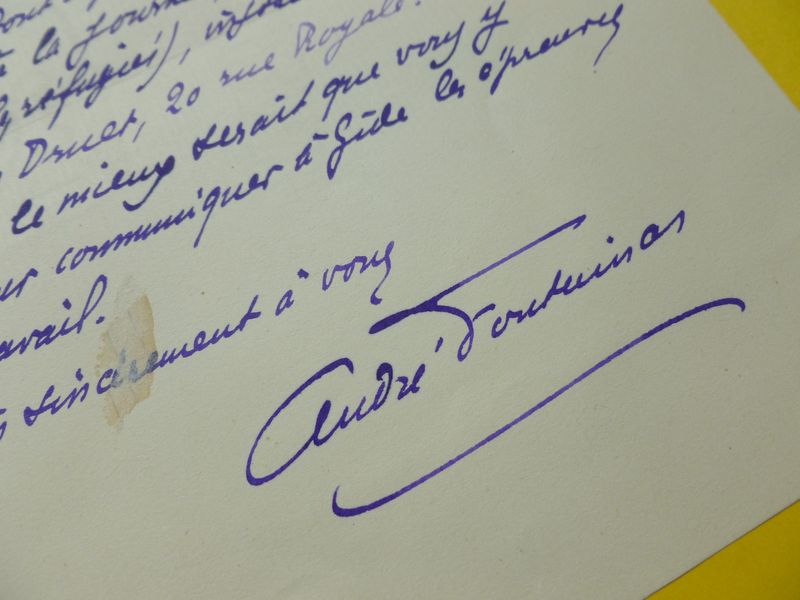 la journée
réfugiés),
Druet, 20 rue Royale.
le mieux serait que vous y
communiquer à Gide les épreuves
avail.
sincèrement à vous
André Fontainas